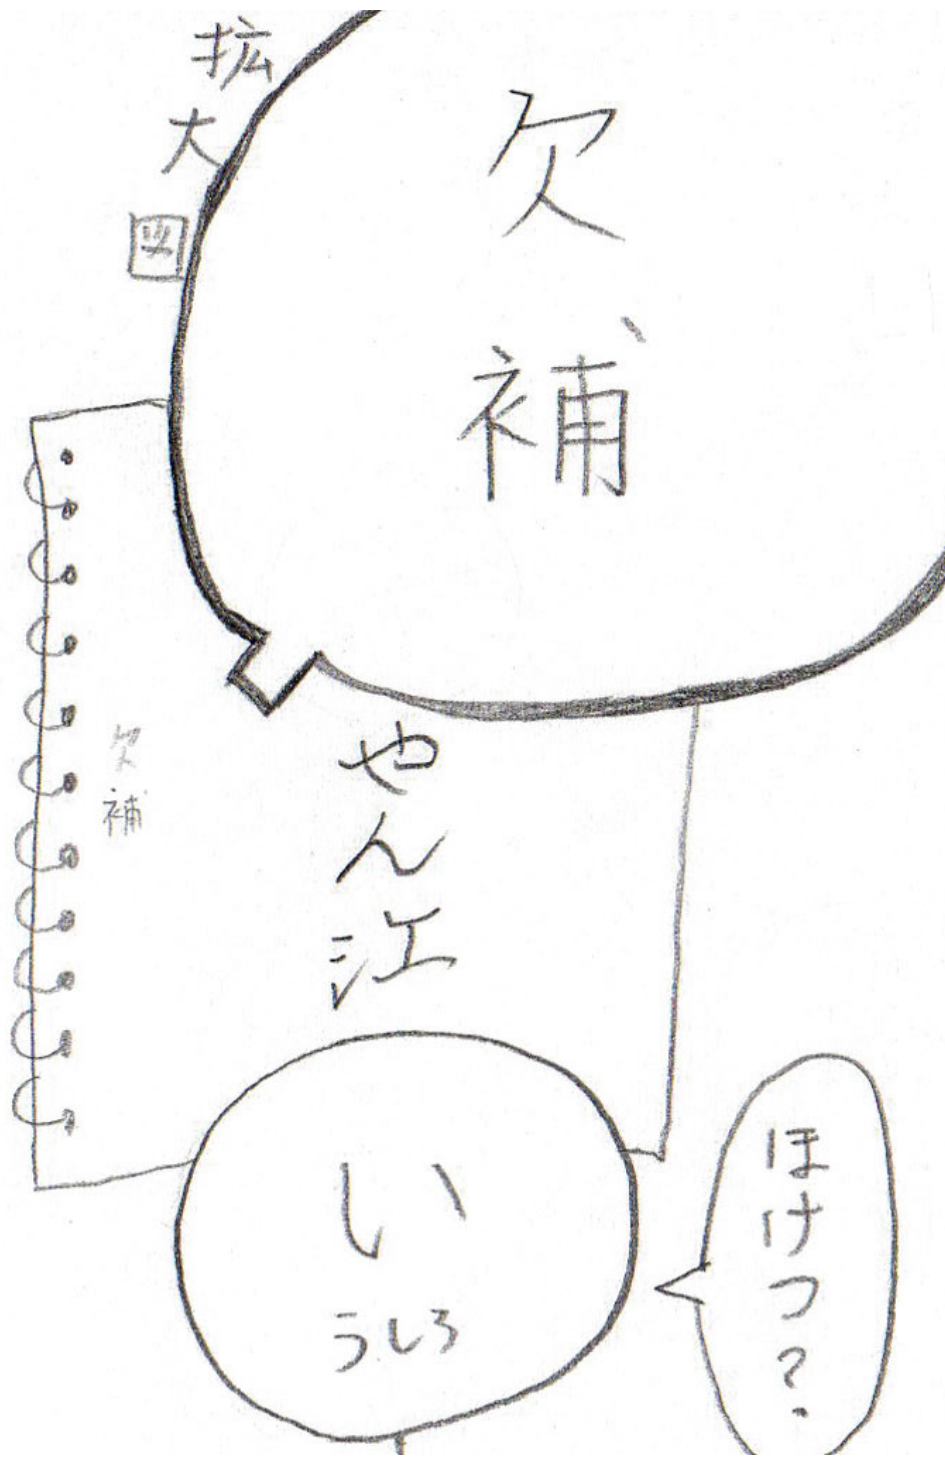 拡大図
欠補
欠補
やん江
い
うしろ
ほけつ？